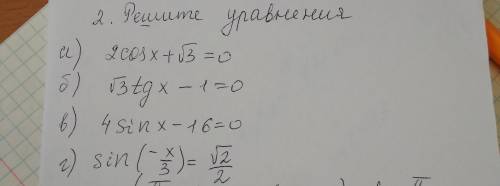 2. Решите уравнения
а) 2cosx+√3=0
б) √3tgx-1=0
в) 4sinx-16=0
г) sin(-x/3)=√2/2